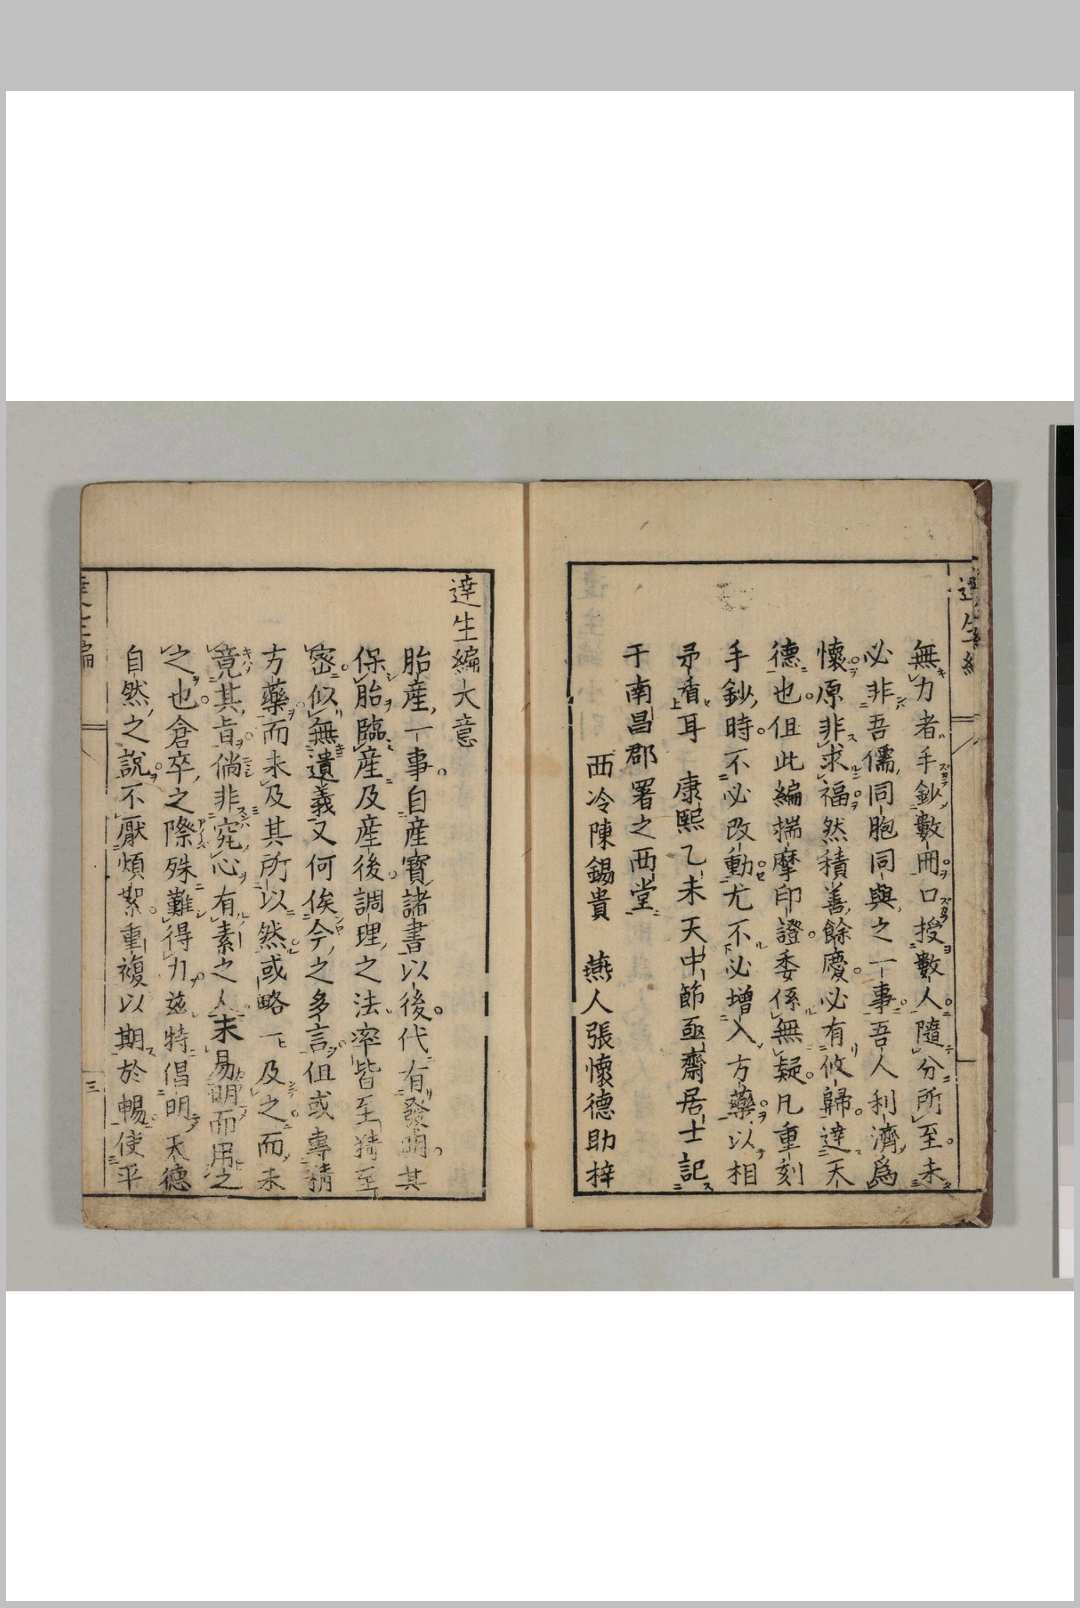 達生編
無力者手鈔數冊口授數人隨分所至未
必非吾儒同胞同與之一事吾人利濟爲
懷原非求福然積善餘慶必有攸歸達天
德也但此編揣摩印證委係無疑凡重刻
手鈔時不必改動尤不必增入方藥以相
矛盾耳 康熙乙未天中節亟齋居士記
于南昌郡署之西堂
西冷陳錫貴 燕人張懷德助梓
達生編大意
胎産一事自産寶諸書以後代有發明其
保胎臨産及産後調理之法率皆至精至
密似無遺義又何俟今之多言但或專精
方藥而未及其所以然或略一及之而未
竟其旨倘非究心有素之人未易明而用之
之也倉卒之際殊難得力茲特倡明天德
自然之說不厭煩絮重複以期於暢使平
達生編
三